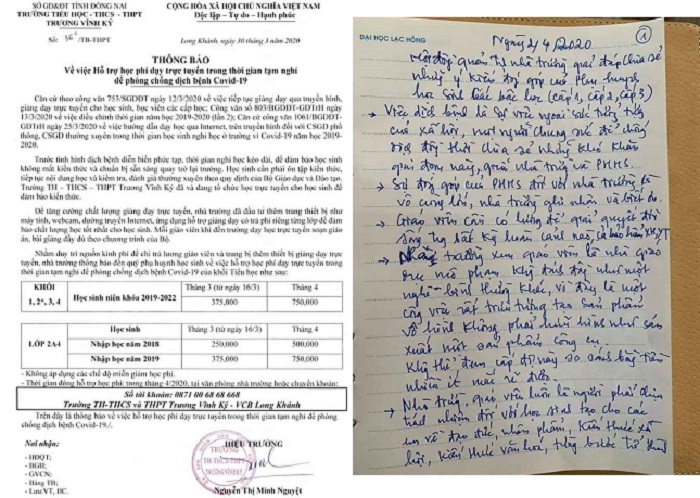 SỞ GD&ĐT TỈNH ĐỒNG NAI
TRƯỜNG TIỂU HỌC - THCS - THPT
TRƯƠNG VĨNH KÝ
Số: /TB-THPT
CỘNG HÒA XÃ HỘI CHỦ NGHĨA VIỆT NAM
Độc lập - Tự do - Hạnh phúc
Long Khánh, ngày 30 tháng 3 năm 2020
THÔNG BÁO
Về việc Hỗ trợ học phí dạy trực tuyến trong thời gian tạm nghỉ
để phòng chống dịch bệnh Covid-19
Căn cứ theo công văn 753/SGDĐT ngày 12/3/2020 về việc tiếp tục giảng dạy qua truyền hình,
giảng dạy trực tuyến cho học sinh, học viên các cấp học; Công văn số 803/BGDĐT-GDTrH ngày
13/3/2020 về việc điều chỉnh thời gian năm học 2019-2020 (lần 2); Căn cứ công văn 1061/BGDĐT-
GDTrH ngày 25/3/2020 về việc hướng dẫn dạy học qua Internet, trên truyền hình đối với CSGD phổ
thông, CSGD thường xuyên trong thời gian học sinh nghỉ học ở trường vì Covid-19 năm học 2019-
2020.
Trước tình hình dịch bệnh diễn biến phức tạp, thời gian nghỉ học kéo dài, để đảm bảo học sinh
không mất kiến thức và chuẩn bị sẵn sàng quay trở lại trường. Học sinh cần phải ôn tập kiến thức,
tiếp tục nội dung học và kiểm tra, đánh giá thường xuyên theo quy định của Bộ Giáo dục và Đào tạo.
Trường TH – THCS – THPT Trương Vĩnh Ký đã và đang tổ chức học trực tuyến cho học sinh để
đảm bảo kiến thức.
Để tăng cường chất lượng giảng dạy trực tuyến, nhà trường đã đầu tư thêm trang thiết bị như
máy tính, webcam, đường truyền Internet, ứng dụng hỗ trợ giảng dạy có trả phí riêng từng lớp để đảm
bảo chất lượng học tốt nhất cho học sinh. Mỗi giáo viên khi đến trường dạy học trực tuyến soạn giáo
án, bài giảng đầy đủ theo chương trình của Bộ.
Nhằm duy trì nguồn kinh phí để chi trả lương giáo viên và trang bị thêm thiết bị giảng dạy trực
tuyến, nhà trường thông báo đến quý phụ huynh học sinh về việc hỗ trợ học phí dạy trực tuyến trong
thời gian tạm nghỉ để phòng chống dịch bệnh Covid-19 của khối Tiểu học như sau:
KHỐI Tháng 3 (từ ngày 16/3) Tháng 4
1, 2, 3, 4 Học sinh niên khóa 2019-2022 375,000 750,000
Học sinh Tháng 3 (từ ngày 16/3) Tháng 4
LỚP 2A4 Nhập học năm 2018 250,000 500,000
Nhập học năm 2019 375,000 750,000
- Không áp dụng các chế độ miễn giảm học phí.
- Thời gian đóng hỗ trợ học phí: trong tháng 4/2020, tại văn phòng nhà trường hoặc chuyển khoản:
Số tài khoản: 0871 00 68 68 668
Trường TH-THCS và THPT Trương Vĩnh Ký - VCB Long Khánh
Trên đây là thông báo về việc hỗ trợ học phí dạy trực tuyến trong thời gian tạm nghỉ để phòng
chống dịch bệnh Covid-19./.
Nơi nhận:
- HĐQT;
- BGH;
- GVCN;
- Bảng TB;
- Lưu VT, HC.
HIỆU TRƯỞNG
TRƯỜNG
TH-THCS-THPT
TRƯƠNG VĨNH KÝ
Nguyễn Thị Minh Nguyệt
ĐẠI HỌC LẠC HỒNG
1
Ngày 2/4/2020
Hội đồng quản trị nhà trường chia sẻ
những ý kiến đóng góp của Phụ huynh
học sinh các bậc học (cấp 1, cấp 2, cấp 3)
- Việc dịch bệnh là sự việc ngoài
của xã hội, mọi người chung sức để chống
đồng thời chia sẻ những khó khăn
giai đoạn này, giữa nhà trường và PHHS.
- Sự đóng góp của PHHS đối với nhà trường là
vô cùng lớn, nhà trường ghi nhận và biết ơn.
- Giáo viên cần có lương để giải quyết đời
sống bất kỳ hoàn cảnh nào, cả bảo hiểm XHYT
- trường xem giáo viên là nhà giáo
dục phạm không như một
nghề bình thường khác, vì đây là một
công việc rất trừu tượng tạo sản phẩm
vô hình không phải hữu hình như sản
xuất một sản phẩm công cụ.
Không thể đem cấp độ này so sánh bằng tiền
nhiều ít mắc rẻ được.
- Nhà trường, giáo viên luôn là người phải chịu
trách nhiệm đối với học sinh tạo cho các
em về đạo đức, nhân phẩm, kiến thức xã
hội, kiến thức văn hóa, từng bước